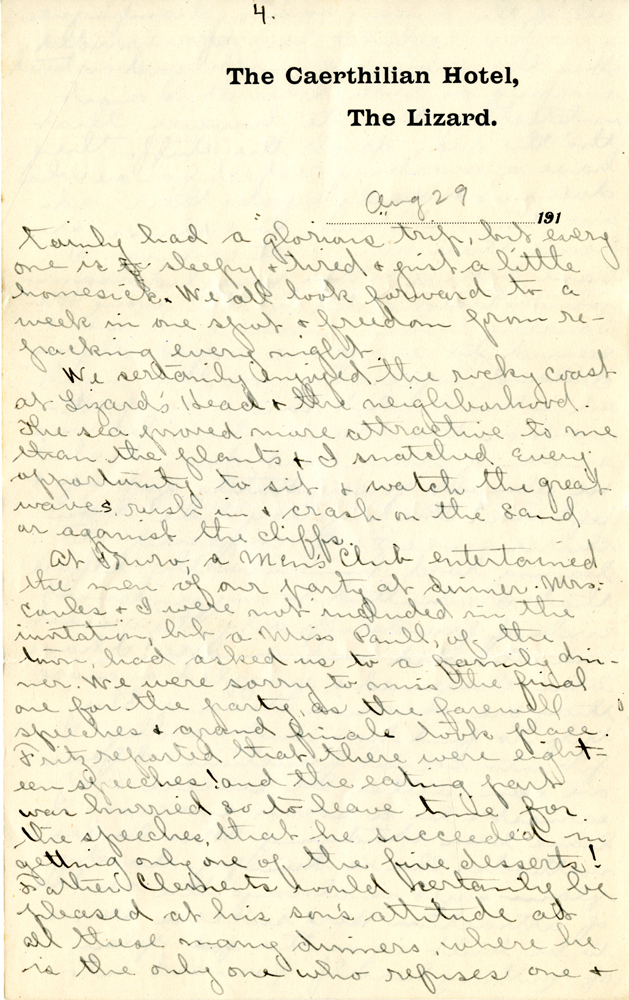 4.
The Caerthilian Hotel,
The Lizard.
Aug 29 191
tainly had a "glorious trip, but every
one is sleepy + tired + just a little
homesick. We all look forward to a
week in one spot + freedom from re-
packing every night.
We certainly enjoyed the rocky coast
at Lizard's Head + the neighborhood.
The sea proved more attractive to me
than the plants + I snatched every
opportunity to sit + watch the great
waves rush in + crash on the sand
or against the cliffs.
At Truro, a Men's Club entertained
the men of our party at dinner. Mrs.
Cowles + I were not included in the
invitation, but a Miss Paull, of the
town, had asked us to a family din-
ner. We were sorry to miss the final
one for the party, as the farewell
speeches + grand finale took place.
Fritz reported that there were eight-
een speeches! and the eating part
was hurried so to leave time for
the speeches, that he succeeded in
getting only one of the five desserts!
Father Clements would certainly be
pleased at his son's attitude at
all these many dinners, where he
is the only one who refuses one +